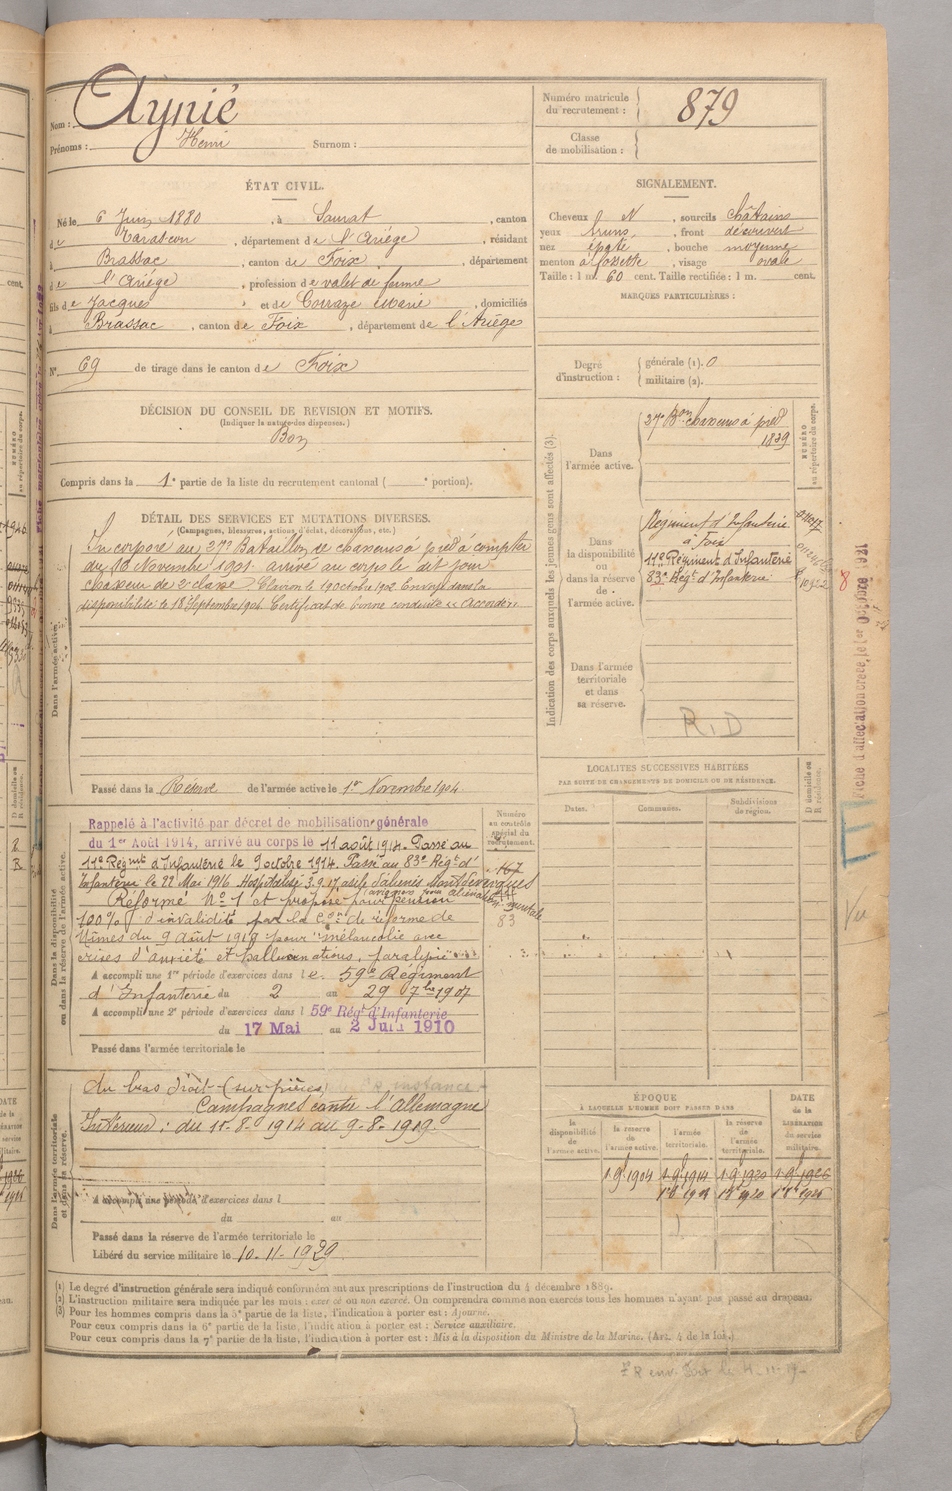 Nom : Aynié
Prénoms : Henri Surnom :
Numéro matricule du recrutement : 879
Classe de mobilisation :
ÉTAT CIVIL.
Né le 6 Juin 1880, à Saurat, canton
de Tarascon, département de l'Ariége, résidant
à Brassac, canton de Foix, département
de l'Ariége, profession de valet de ferme
fils de Jacques et de Corraze Marie, domiciliés
à Brassac, canton de Foix, département de l'Ariége
N° 69 de tirage dans le canton de Foix
SIGNALEMENT.
Cheveux N, sourcils châtains
yeux bruns, front découvert
nez épaté, bouche moyenne
menton à fossette, visage ovale
Taille : 1 m. 60 cent. Taille rectifiée : 1 m. cent.
MARQUES PARTICULIÈRES :
Degré d'instruction : générale (1). 0
militaire (2).
DÉCISION DU CONSEIL DE REVISION ET MOTIFS.
(Indiquer la nature des dispenses.)
Bon
Compris dans la 1e partie de la liste du recrutement cantonal ( e portion).
DÉTAIL DES SERVICES ET MUTATIONS DIVERSES.
(Campagnes, blessures, actions d'éclat, décorations, etc.)
Dans l'armée active.
Incorporé au 27e Bataillon de chasseurs à pied à compter
du 16 Novembre 1901. arrivé au corps le dit jour
chasseur de 2e classe. Clairon le 19 octobre 1902. Envoyé dans la
disponibilité le 18 Septembre 1904. Certificat de bonne conduite "Accordé".
Passé dans la Réserve de l'armée active le 1er Novembre 1904.
Indication des corps auxquels les jeunes gens sont affectés (3).
NUMÉRO au répertoire du corps.
Dans l'armée active.
27e Bon chasseurs à pied
1839
Dans la disponibilité ou dans la réserve de l'armée active.
Régiment d'Infanterie
à Foix
11e Régiment d'Infanterie
83e Régt d'Infanterie
Dans l'armée territoriale et dans sa réserve.
R.D
LOCALITÉS SUCCESSIVES HABITÉES
PAR SUITE DE CHANGEMENTS DE DOMICILE OU DE RÉSIDENCE.
Dates. Communes. Subdivisions de région. D domicile ou R résidence.
Dans la disponibilité ou dans la réserve de l'armée active.
Numéro au contrôle spécial du recrutement.
Rappelé à l'activité par décret de mobilisation générale
du 1er Août 1914, arrivé au corps le 11 août 1914. Passé au
11e Régmt d'Infanterie le 9 octobre 1914. Passé au 83e Régt d'
Infanterie le 22 Mai 1916. Hospitalisé 3.9.17, asile d'aliénés Montdevergues
(avignon) pour aliénation mentale
Réformé N° 1 et proposé pour pension
100% d'invalidité par la Con de réforme de
Nîmes du 9 août 1919 pour "mélancolie avec
crises d'anxiété et hallucinations, paralysie
167
83
A accompli une 1re période d'exercices dans le 59e Régiment
d'Infanterie du 2 au 29 7bre 1907
A accompli une 2e période d'exercices dans l 59e Régt d'Infanterie
du 17 Mai au 2 Juin 1910
Passé dans l'armée territoriale le
Dans l'armée territoriale et dans sa réserve.
du bras droit (sur pièces)
Campagnes contre l'Allemagne
Intérieur : du 11-8-1914 au 9-8-1919.
A accompli une période d'exercices dans l
du au
Passé dans la réserve de l'armée territoriale le
Libéré du service militaire le 10-11-1929
ÉPOQUE
À LAQUELLE L'HOMME DOIT PASSER DANS
DATE de la LIBÉRATION du service militaire.
la disponibilité de l'armée active. la réserve de l'armée active. l'armée territoriale. la réserve de l'armée territoriale.
1.9.1904 1.9.1914 1.9.1920 1.9.1926
(1) Le degré d'instruction générale sera indiqué conformément aux prescriptions de l'instruction du 4 décembre 1889.
(2) L'instruction militaire sera indiquée par les mots : exercé ou non exercé. On comprendra comme non exercés tous les hommes n'ayant pas passé au drapeau.
(3) Pour les hommes compris dans la 5e partie de la liste, l'indication à porter est : Ajourné.
Pour ceux compris dans la 6e partie de la liste, l'indication à porter est : Service auxiliaire.
Pour ceux compris dans la 7e partie de la liste, l'indication à porter est : Mis à la disposition du Ministre de la Marine. (Art. 4 de la loi.)
Vu